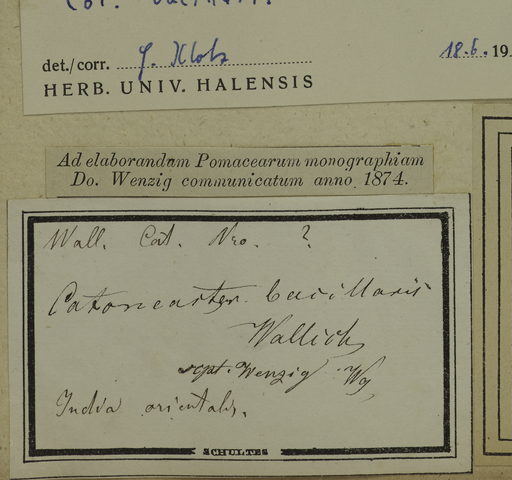 det./corr. G. Klotz 18.6.19
HERB. UNIV. HALENSIS
Ad elaborandum Pomacearum monographiam
Do. Wenzig communicatum anno 1874.
Wall. Cat. Nro. ?
Cotoneaster bacillaris
Wallich
sept. Wenzig Wg
India orientalis.
SCHULTES